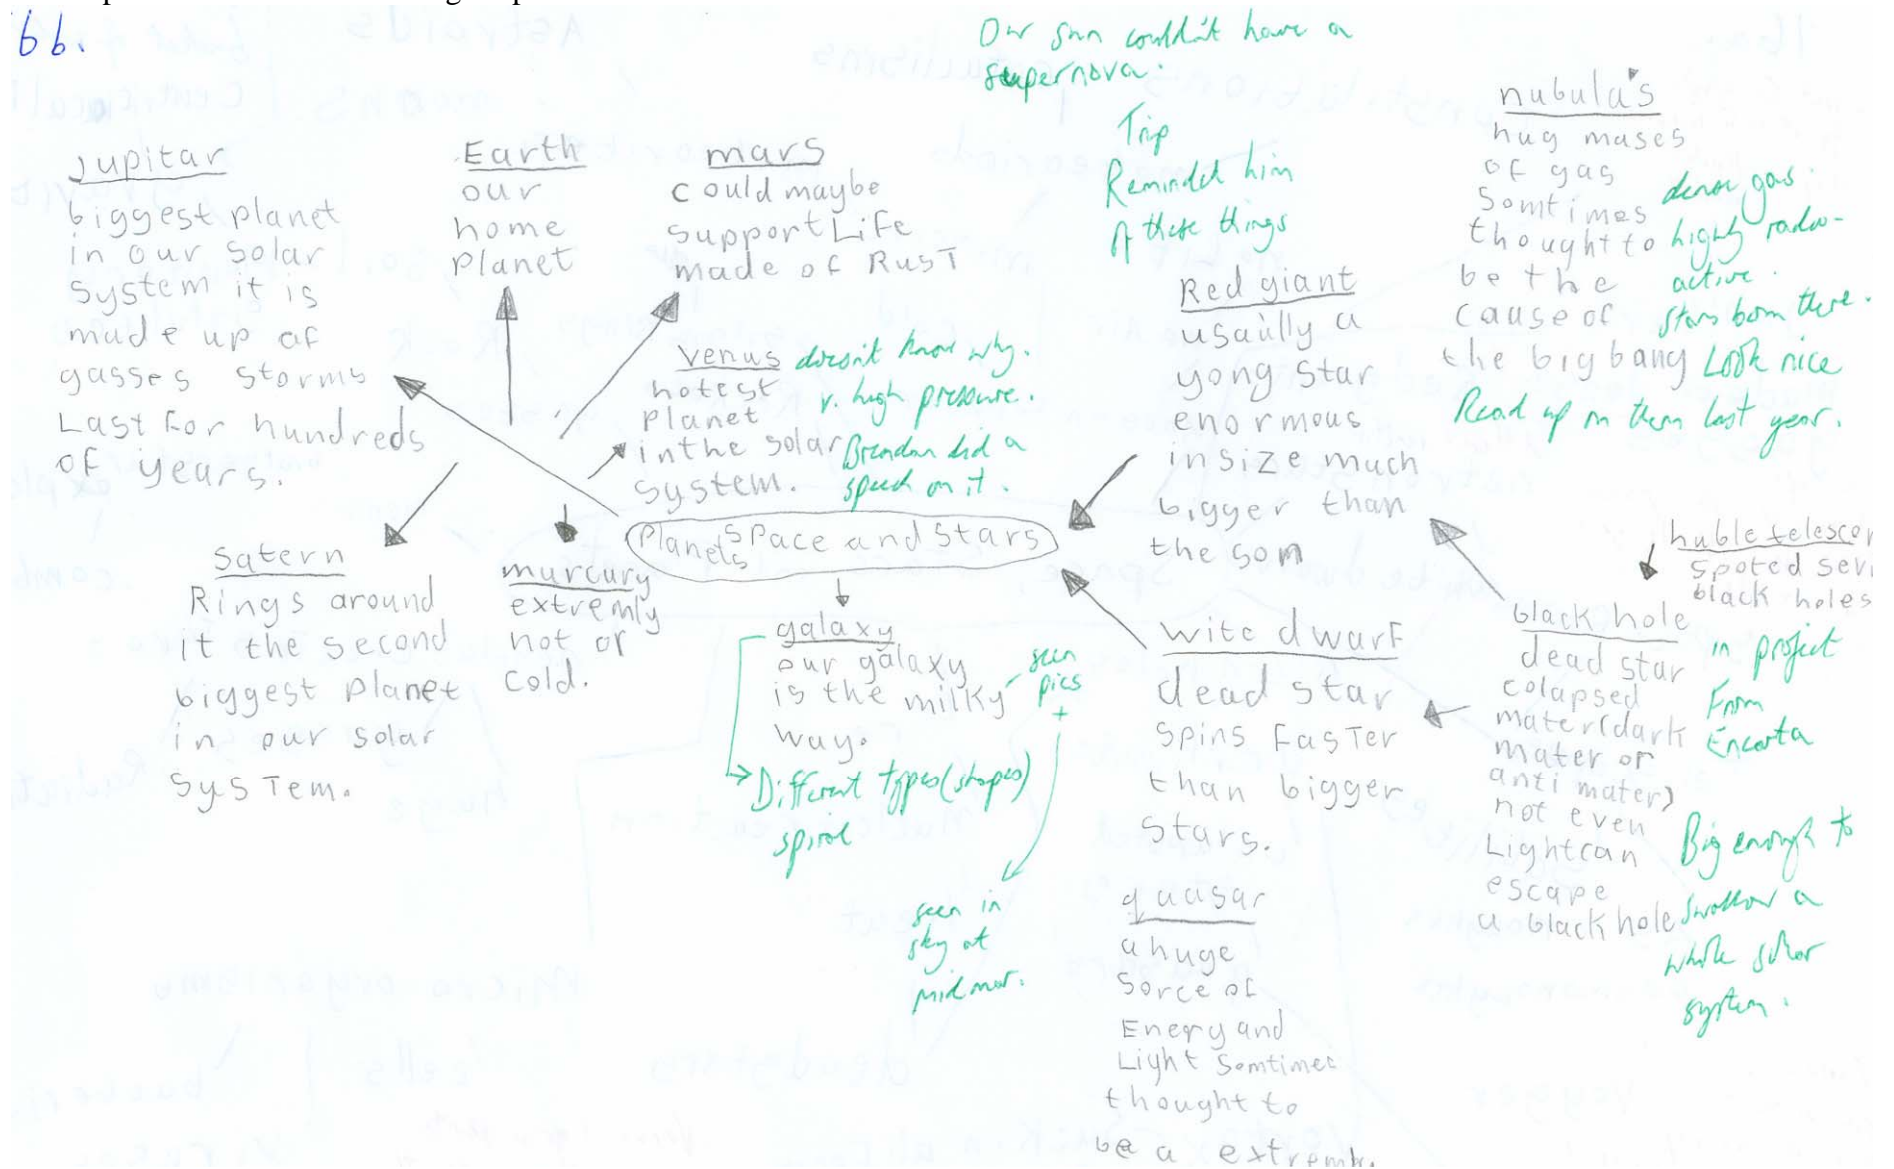 6b.
Our sun couldn't have a
supernova.
Trip
Reminded him
of these things
jupitar
biggest planet
in our solar
system it is
made up of
gasses storms
Last For hundreds
of years.
Earth
our
home
planet
mars
could maybe
support Life
made of RusT
venus
hotest
planet
in the solar
system.
doesn't know why.
v. high pressure.
Brendan did a
speech on it.
Red giant
usaully a
yong star
enormous
in size much
bigger than
the son
nubula's
hug mases
of gas
somtimes
thought to
be the
cause of
the big bang
dense gas.
highly radio-
active.
stars born there.
Look nice
Read up on them last year.
satern
Rings around
it the second
biggest planet
in our solar
sysTem.
murcury
extremly
hot or
cold.
Planets space and stars
galaxy
our galaxy
is the milky
way.
seen
pics
+
Different types (shapes)
spiral
seen in
sky at
midmar.
wite dwarf
dead star
spins FasTer
than bigger
stars.
huble telescop
spoted sev
black holes
black hole
dead star
colapsed
mater(dark
mater or
anti mater)
not even
Light can
escape
a black hole
in project
From
Encarta
Big enough to
swallow a
whole solar
system.
quasar
a huge
sorce of
Energy and
Light somtimes
thought to
be a extremly